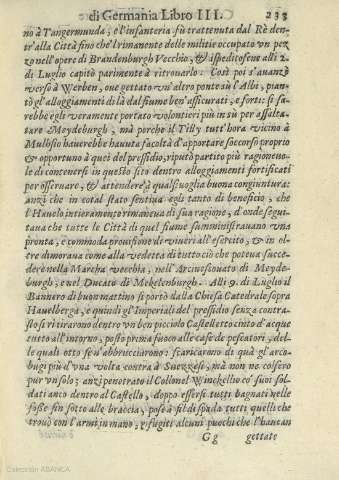 di Germania Libro III. 233
no à Tangermunda, e l'infanteria fù trattenuta dal Rè den-
tr'alla Città fino che'l rimanente delle militie occupato vn pez
zo nell'opere di Brandenburgh Vecchio, & ispeditosene alli 2.
di Luglio capitò parimente à ritrouarlo. Così poi s'auanzò
verso à Werben, oue gettato vn'altro ponte sù l'Albi, pian-
tò gl'alloggiamenti di là dal fiume ben'assicurati, e forti: si sa-
rebbe egli veramente portato volontieri più in sù per assalta-
tare Meydeburgh, mà perche il Tilly tutt'hora vicino à
Mulhsio hauerebbe hauuta facoltà d'apportare soccorso proprio
& opportuno à quei del pressidio, riputò partito più ragioneuo-
le di contenersi in questo sito dentro alloggiamenti fortificati
per osseruare, & attendere à qualsiuoglia buona congiuntura:
anzi che in cotal stato sentiua egli tanto di beneficio, che
l'Hauelo intieramente rimaneua di sua ragione, d'onde segui-
taua che tutte le Città di quel fiume sumministrauano vna
pronta, e commoda prouisione di viueri all'esercito, & in ol-
tre dimoraua come alla vedetta di tutto ciò che poteua succe-
dere nella Marcha vecchia, nell'Arciuescouato di Meyde-
burgh, e nel Ducato di Mekelenburgh. Alli 9. di Luglio il
Bannero di buon mattino si portò dalla Chiesa Catedrale sopra
Hauelberga, e quindi gl'Imperiali del pressidio senza contra-
sto si ritirarono dentro vn ben picciolo Castelletto cinto d'acque
tutto all'intorno, posto prima fuoco alle case de pescatori, del-
le quali otto se n'abbrucciarono: scaricarono di quà gl'arco-
bugi più d'vna volta contra à Suezzesi, mà non ne colsero
pur vn solo; anzi penetrato il Collonel Winckellio co' suoi sol-
dati anco dentro al Castello, doppo essersi tutti bagnati nelle
fosse sin sotto alle braccia, pose à fil di spada tutti quelli che
trouò con l'armi in mano, rifugiti alcuni puochi che l'hauean
Gg gettate
Colección ABANCA